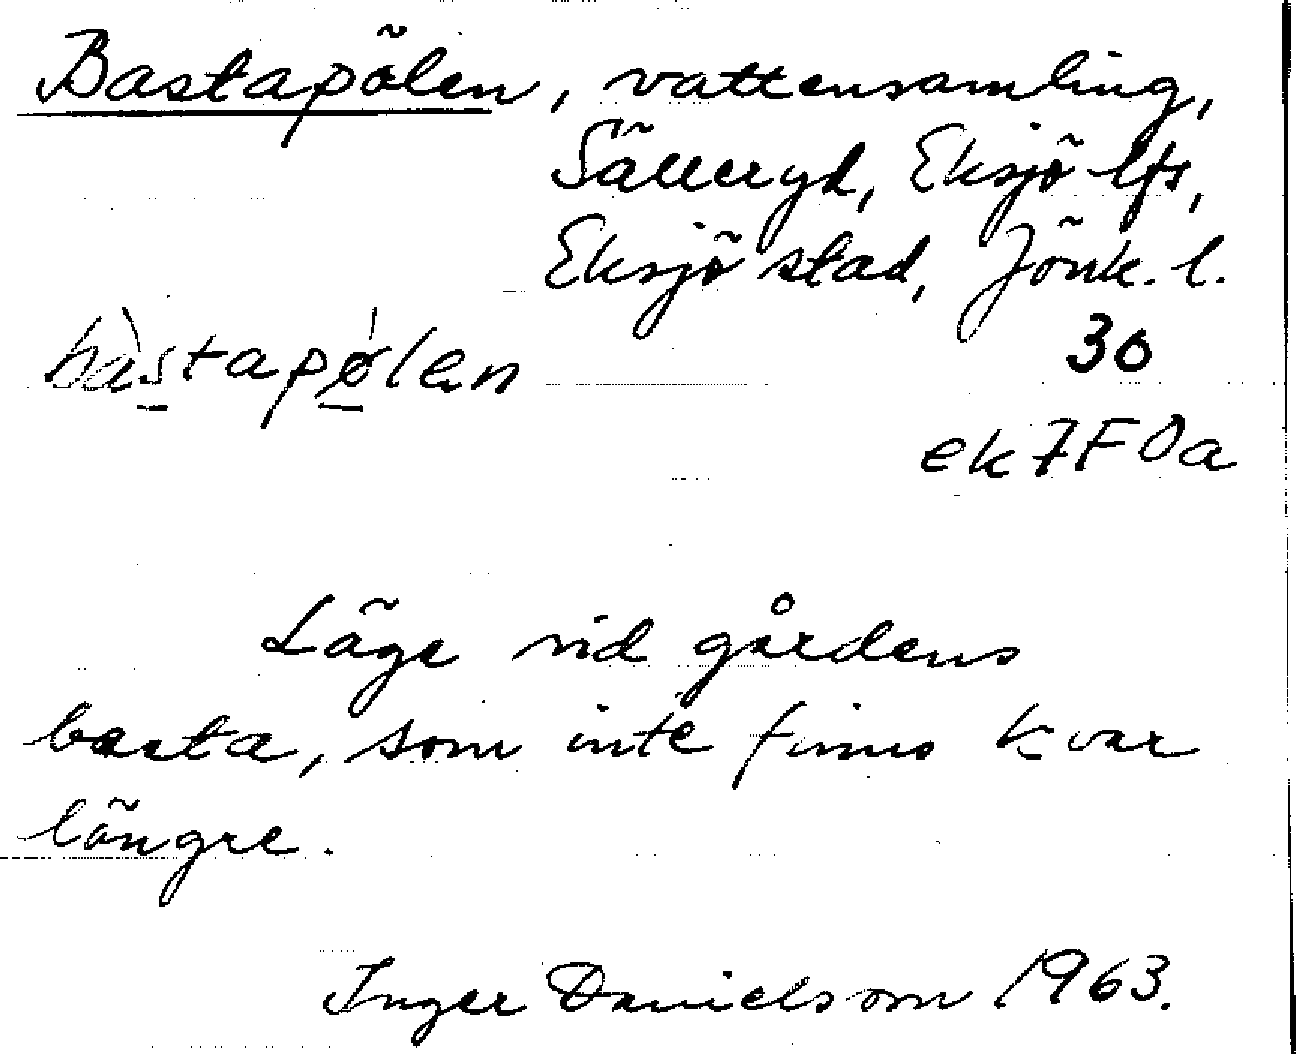 Bastapölen, vattensamling,
Sälleryd, Eksjö lfs,
Eksjö stad, Jönk. l.
bàstapø̀len
30
ek 7F 0a
Läge vid gårdens
basta, som inte finns kvar
längre.
Inger Danielsson 1963.